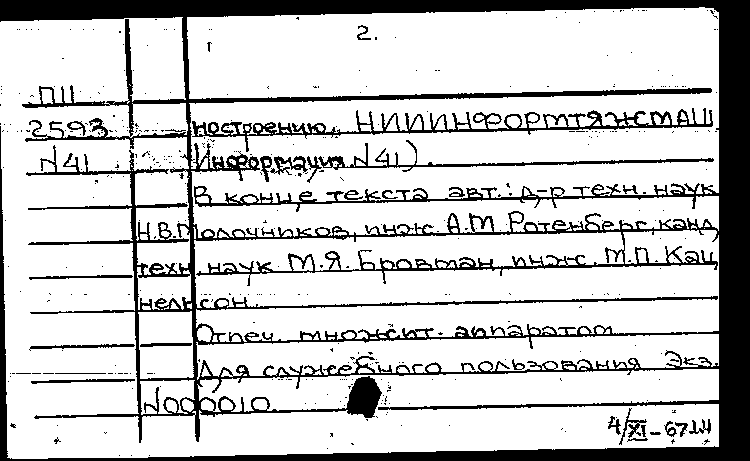 2.
П11
2593 ностроению, НИИИНФОРМТЯЖМАШ
N41 Информация N41).
В конце текста авт.: д-р техн. наук
Н.В.Молочников, инж. А.М Ротенберг, канд.
техн. наук М.Я. Бровман, инж. М.П. Кац
нельсон.
Отпеч. множит. аппаратом
Для служебного пользования Экз.
N000010.
4/XI-67